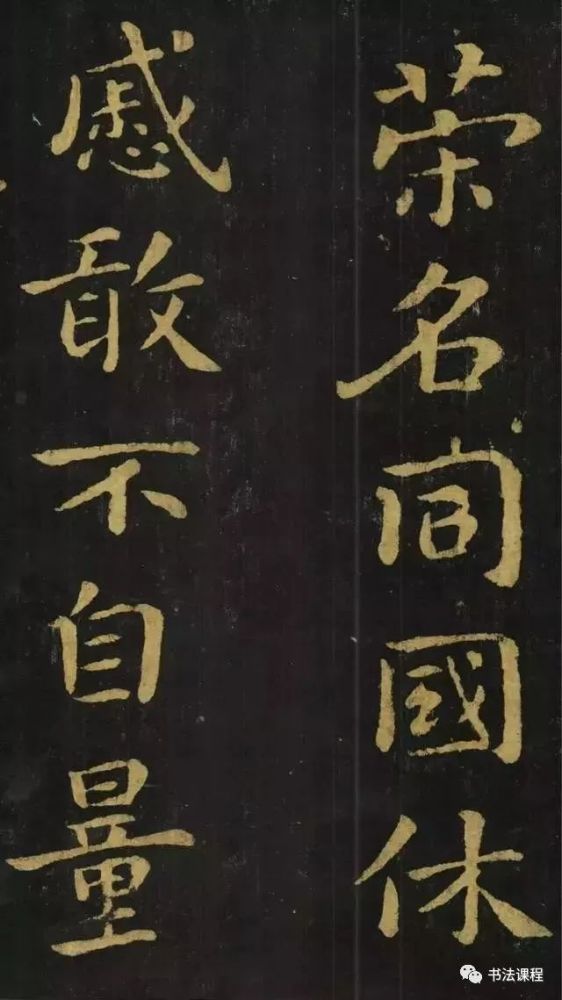 荣名同國休
慼敢不自量
书法课程